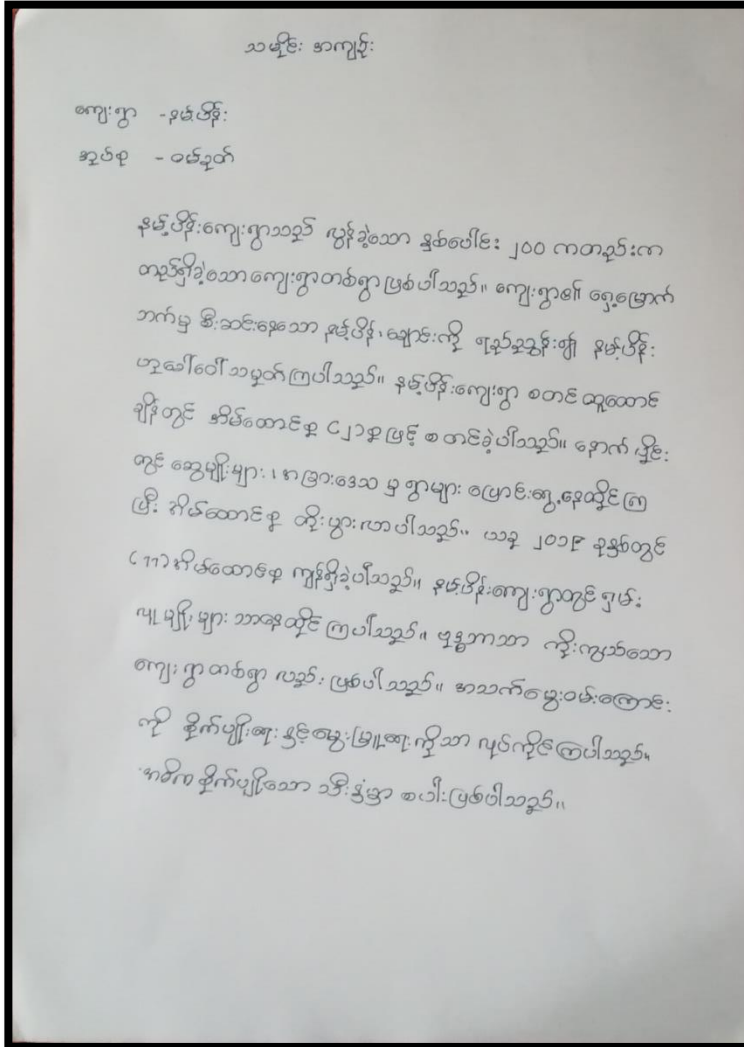 သမိုင်း အကျဉ်း
ကျေးရွာ - နမ့်ပိန်း
အုပ်စု - ဝမ်ခုတ်
နမ့်ပိန်းကျေးရွာသည် လွန်ခဲ့သော နှစ်ပေါင်း ၂၀၀ ကတည်းက
တည်ရှိခဲ့သော ကျေးရွာတစ်ရွာ ဖြစ်ပါသည်။ ကျေးရွာ၏ ရှေ့မြောက်
ဘက်မှ စီးဆင်းနေသော နမ့်ပိန်းချောင်းကို ရည်ညွှန်း၍ နမ့်ပိန်း
ဟူခေါ်ဝေါ် သမုတ်ကြပါသည်။ နမ့်ပိန်းကျေးရွာ စတင် ထူထောင်
ချိန်တွင် အိမ်ထောင်စု (၂)စု ဖြင့် စတင်ခဲ့ပါသည်။ နောက် ပိုင်း
တွင် ဆွေမျိုးများ၊ အခြားဒေသ မှ ရွာများ ပြောင်းရွှေ့နေထိုင်ကြ
ပြီး အိမ်ထောင်စု တိုးပွားလာပါသည်။ ယခု ၂၀၁၉ ခုနှစ်တွင်
(၁၁)အိမ်ထောင်စု ကျန်ရှိခဲ့ပါသည်။ နမ့်ပိန်းကျေးရွာတွင် ရှမ်း
လူမျိုးများ သာနေထိုင်ကြပါသည်။ ဗုဒ္ဓဘာသာ ကိုးကွယ်သော
ကျေးရွာတစ်ရွာ လည်း ဖြစ်ပါသည်။ အသက်မွေးဝမ်းကြောင်း
ကို စိုက်ပျိုးရေး နှင့်မွေးမြူရေးကိုသာ လုပ်ကိုင်ကြပါသည်။
အဓိက စိုက်ပျိုးသော သီးနှံမှာ စပါးဖြစ်ပါသည်။